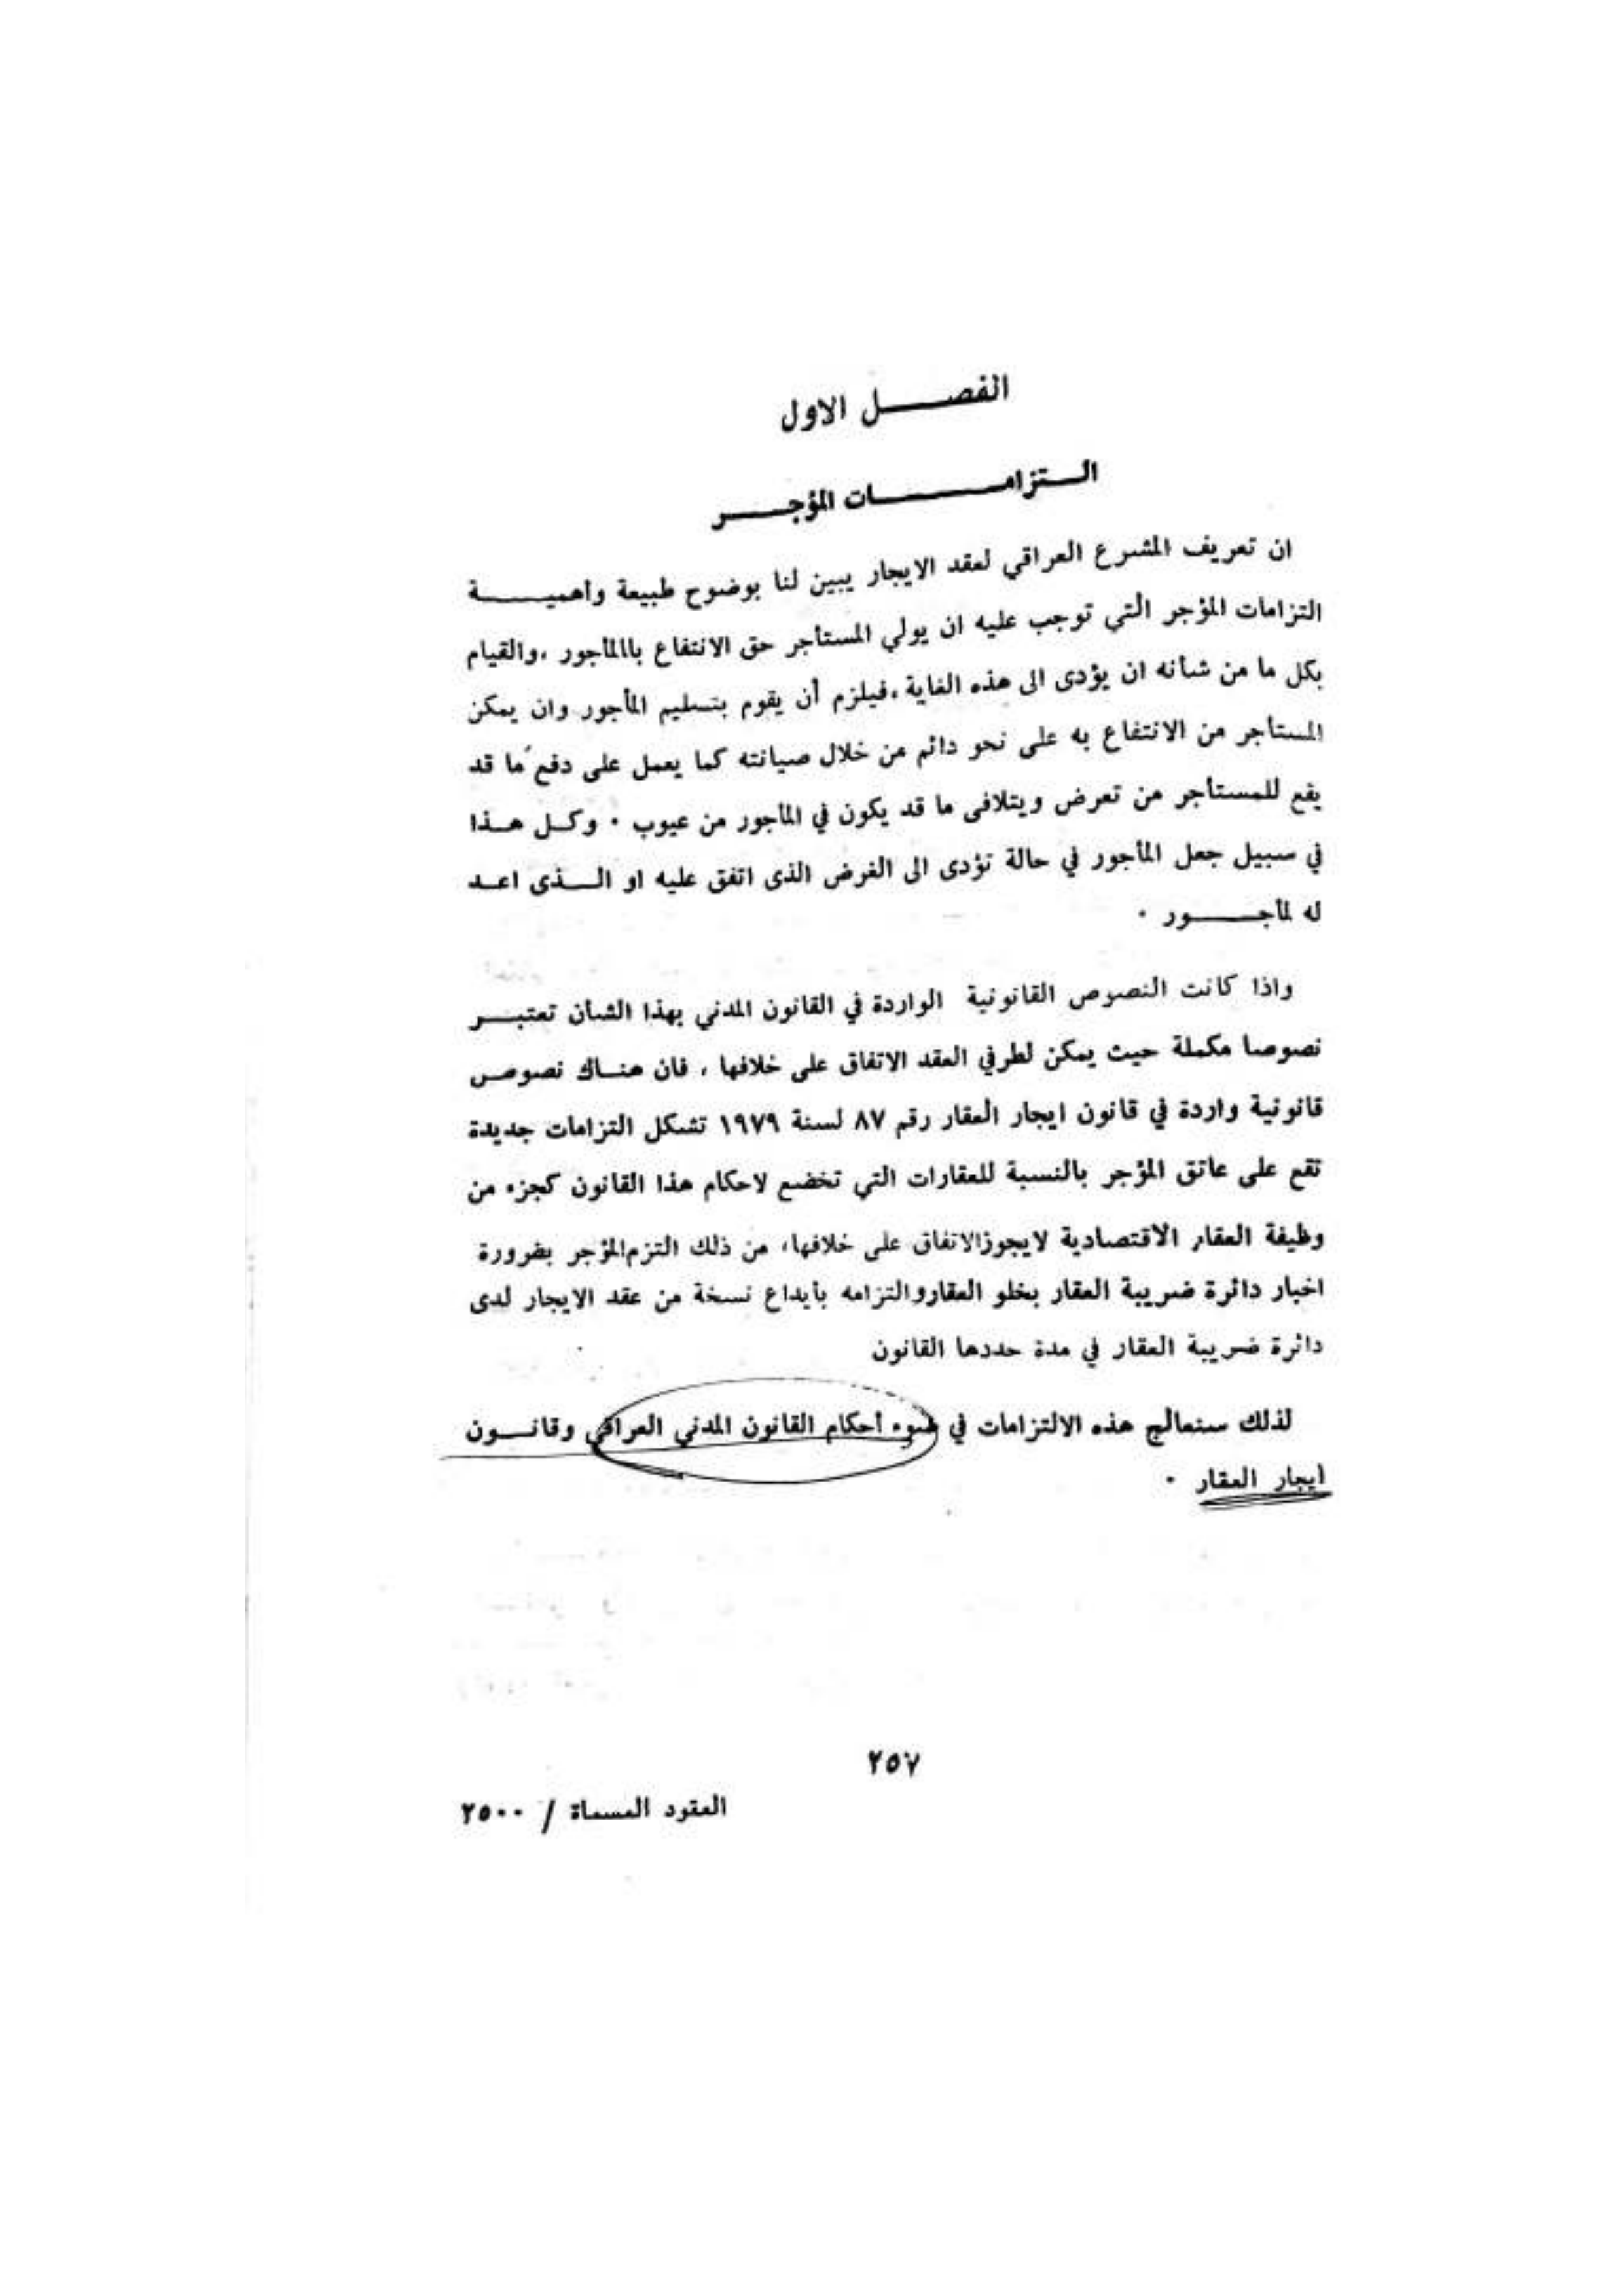 الفصل الاول
التزامات المؤجر
ان تعريف المشرع العراقي لعقد الايجار يبين لنا بوضوح طبيعة وأهمية
التزامات المؤجر التي توجب عليه ان يولي المستأجر حق الانتفاع باالمأجور ،والقيام
بكل ما من شأنه ان يؤدى الى هذه الغاية ،فيلزم أن يقوم بتسليم المأجور وان يمكن
المستأجر من الانتفاع به على نحو دائم من خلال صيانته كما يعمل على دفع ما قد
يقع للمستأجر من تعرض ويتلافى ما قد يكون في المأجور من عيوب ٠ وكل هذا
في سبيل جعل المأجور في حالة تؤدى الى الغرض الذى اتفق عليه او الذى اعد
له لمأجور ٠
واذا كانت النصوص القانونية الواردة في القانون المدني بهذا الشأن تعتبر
نصوصا مكملة حيث يمكن لطرفي العقد الاتفاق على خلافها ، فان هناك نصوص
قانونية واردة في قانون ايجار العقار رقم ٨٧ لسنة ١٩٧٩ تشكل التزامات جديدة
تقع على عاتق المؤجر بالنسبة للعقارات التي تخضع لاحكام هذا القانون كجزء من
وظيفة العقار الاقتصادية لايجوزالاتفاق على خلافها، من ذلك التزم المؤجر بضرورة
اخبار دائرة ضريبة العقار بخلو العقاروالتزامه بأيداع نسخة من عقد الايجار لدى
دائرة ضريبة العقار في مدة حددها القانون
لذلك سنعالج هذه الالتزامات في ضوء أحكام القانون المدني العراقي وقانون
ايجار العقار ٠
٢٥٧
العقود المسماة / ٢٥٠٠